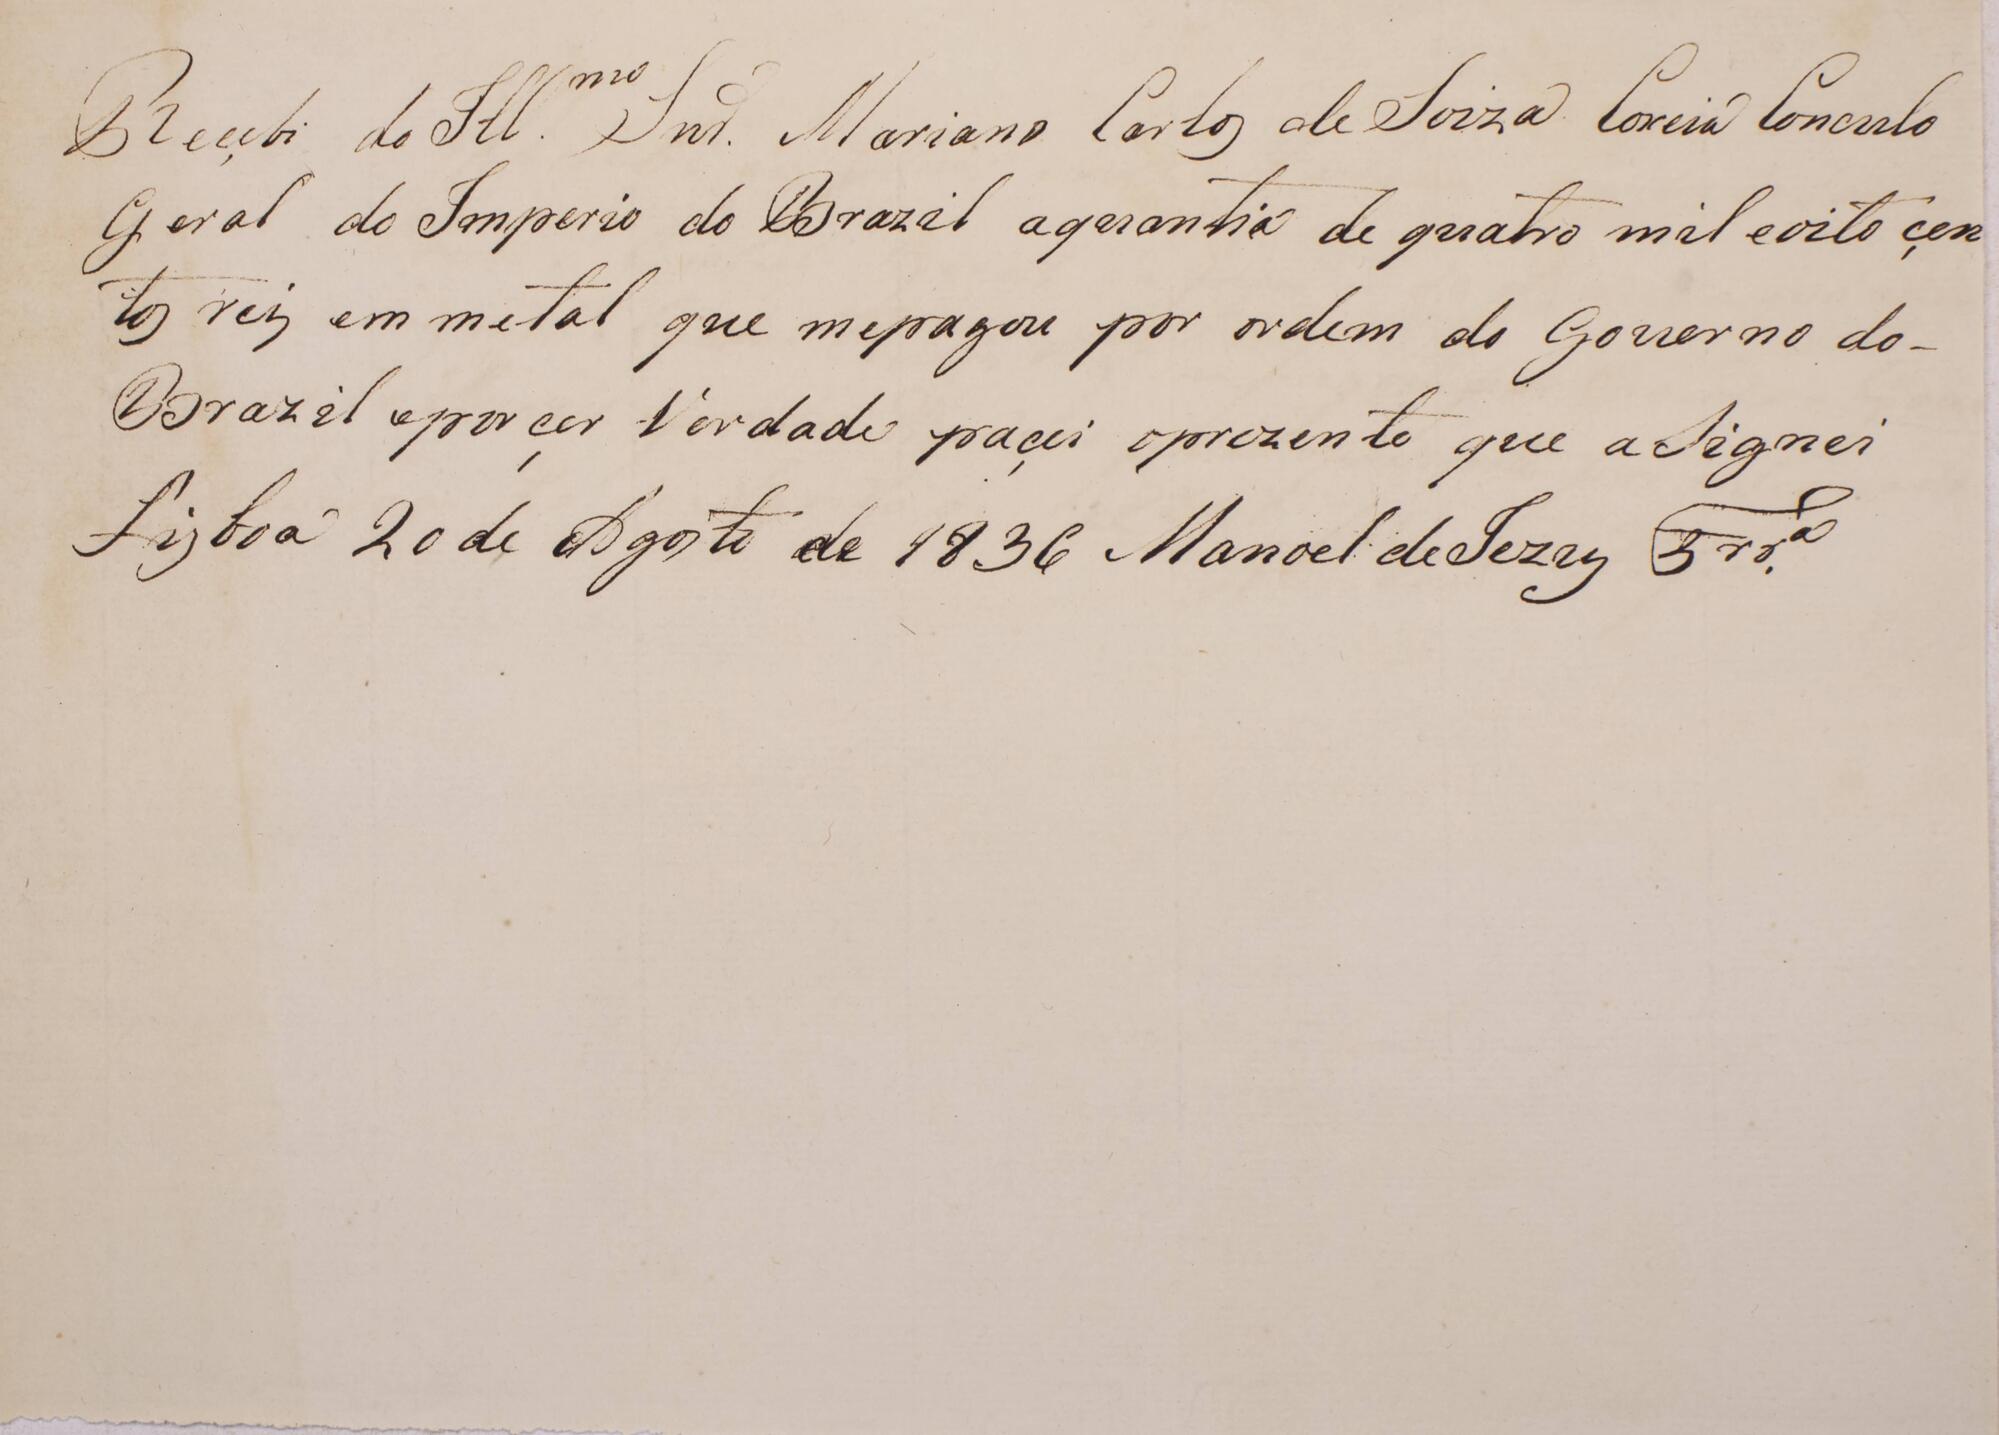 Reçebi do Ill.mo Snr. Mariano Carlos de Soiza Coreia Conculo
Geral do Imperio do Brazil aquantia de quatro mil eoito çen
tos reis em metal que mepagou por ordem do Governo do-
Brazil eporçer Verdade paçei oprezente que aSignei
Lisboa 20 de Agosto de 1836 Manoel de Jezus Frr.ª